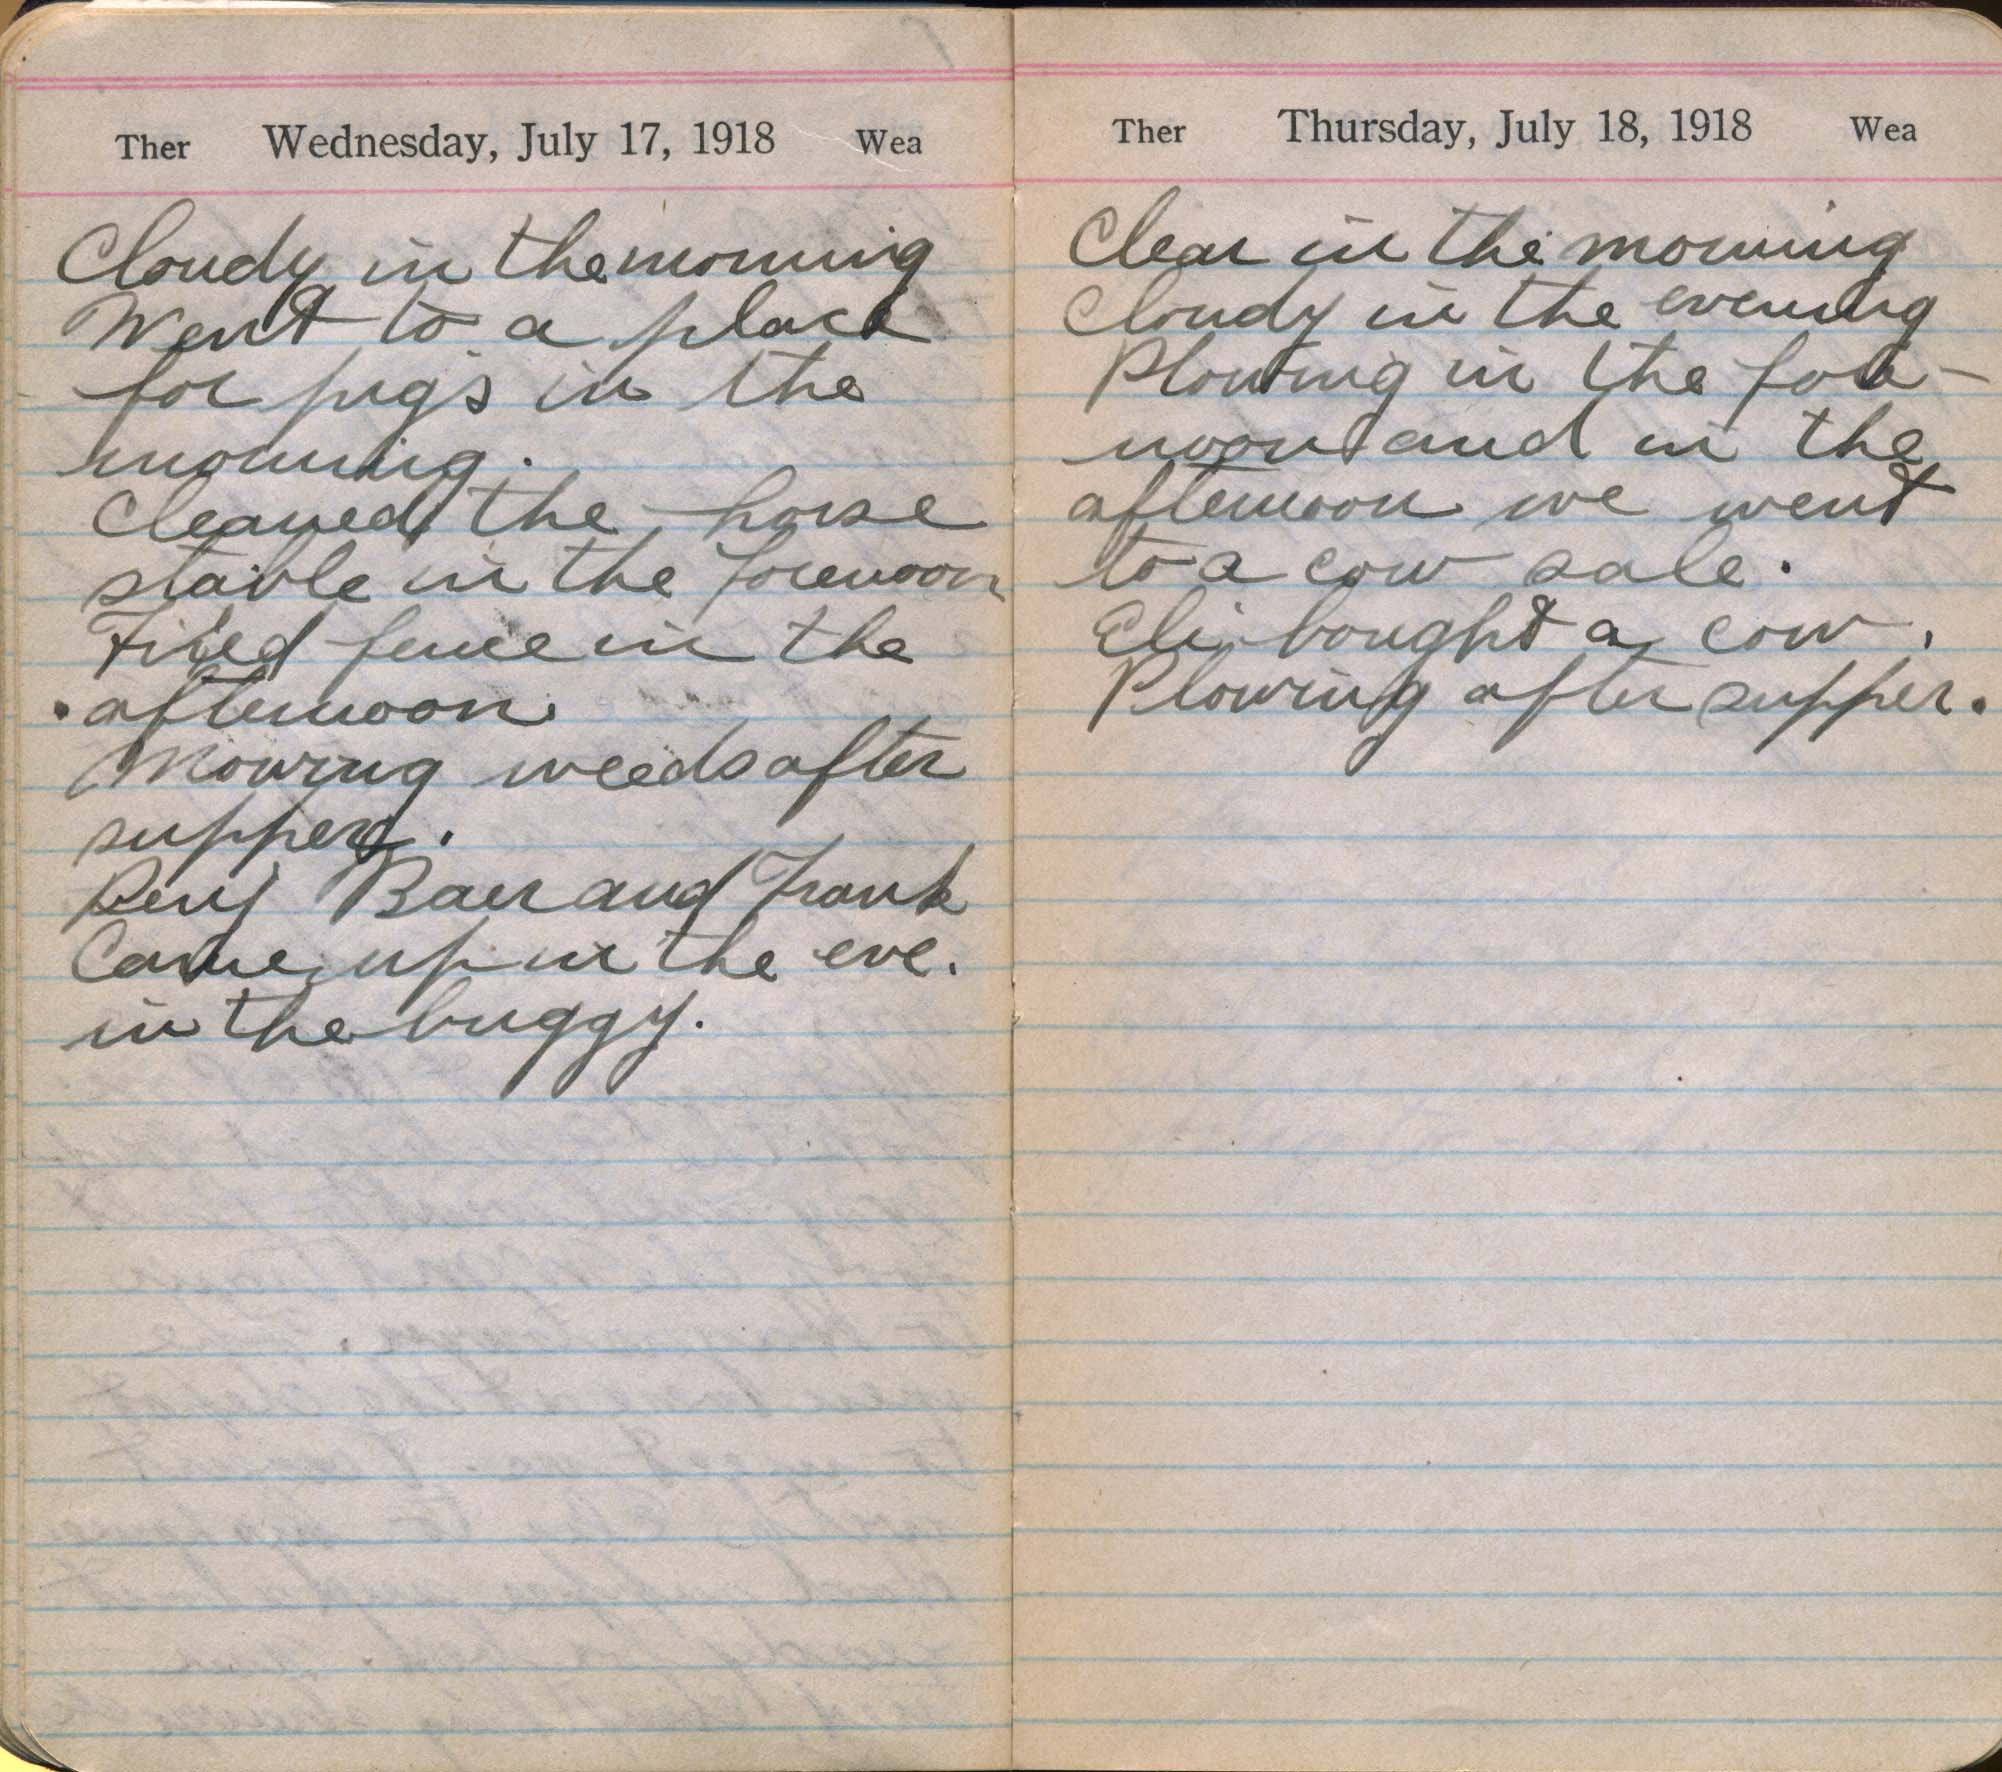 Ther Wednesday, July 17, 1918 Wea
Cloudy in the morning
Went to a place
for pigs in the
morning.
Cleaned the horse
stable in the forenoon
Fixed fence in the
afternoon
Mowing weeds after
supper.
Benj Baer and Frank
Came up in the eve.
in the buggy.
Ther Thursday, July 18, 1918 Wea
Clear in the morning
Cloudy in the evening
Plowing in the fore-
noon and in the
afternoon we went
to a cow sale.
Eli bought a cow.
Plowing after supper.